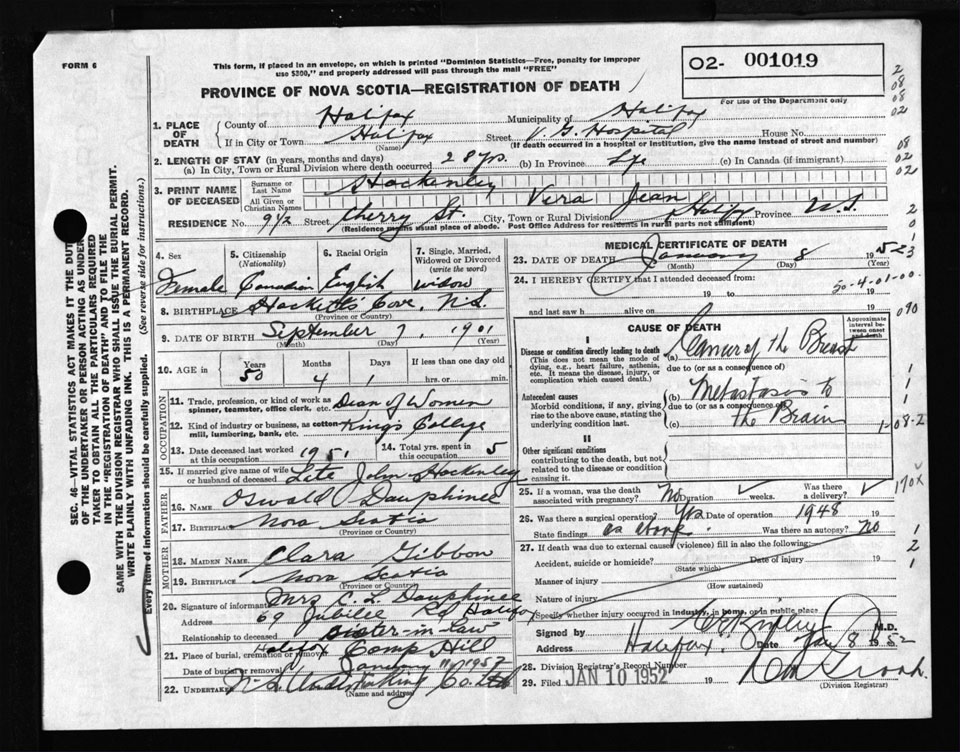 FORM 6
This form, if placed in an envelope, on which is printed "Dominion Statistics—Free, penalty for improper
use $300," and properly addressed will pass through the mail "FREE"
O2- 001019
For use of the Department only
PROVINCE OF NOVA SCOTIA—REGISTRATION OF DEATH
SEC. 46—VITAL STATISTICS ACT MAKES IT THE DUTY
OF THE UNDERTAKER OR PERSON ACTING AS UNDERTAKER TO OBTAIN ALL THE PARTICULARS REQUIRED
IN THE "REGISTRATION OF DEATH" AND TO FILE THE
SAME WITH THE DIVISION REGISTRAR WHO SHALL ISSUE THE BURIAL PERMIT.
WRITE PLAINLY WITH UNFADING INK. THIS IS A PERMANENT RECORD.
Every item of information should be carefully supplied. (See reverse side for instructions.)
1. PLACE OF DEATH County of Halifax Municipality of Halifax
If in City or Town Halifax (Name) Street V. G. Hospital House No.
(If death occurred in a hospital or institution, give the name instead of street and number)
2. LENGTH OF STAY (in years, months and days)
(a) In City, Town or Rural Division where death occurred 28 yrs. (b) In Province Life (c) In Canada (if immigrant)
3. PRINT NAME OF DECEASED Surname or Last Name Hockenley
All Given or Christian Names Vera Jean
RESIDENCE No. 9 1/2 Street Cherry St. City, Town or Rural Division Halifax Province N.S.
(Residence means usual place of abode. Post Office Address for residents in rural parts not sufficient)
4. Sex 5. Citizenship (Nationality) 6. Racial Origin 7. Single, Married, Widowed or Divorced (write the word)
Female Canadian English widow
8. BIRTHPLACE Hacketts Cove, N.S.
(Province or Country)
9. DATE OF BIRTH September 7, 1901
(Month) (Day) (Year)
10. AGE in Years Months Days If less than one day old
50 4 1 hrs. or min.
OCCUPATION
11. Trade, profession, or kind of work as spinner, teamster, office clerk, etc. Dean of Women
12. Kind of industry or business, as cotton mill, lumbering, bank, etc. Kings College
13. Date deceased last worked at this occupation 1951 14. Total yrs. spent in this occupation 5
15. If married give name of wife or husband of deceased Late John Hockenley
FATHER
16. NAME Oswald Dauphinee
17. BIRTHPLACE Nova Scotia
(Province or Country)
MOTHER
18. MAIDEN NAME Clara Gibbon
19. BIRTHPLACE Nova Scotia
(Province or Country)
20. Signature of informant Mrs C. L. Dauphinee
Address 69 Jubilee Rd Halifax
Relationship to deceased sister-in-law
21. Place of burial, cremation or removal Halifax Camp Hill
Date of burial or removal January 11, 1952
22. Undertaker N.S. Undertaking Co. Ltd
(Name and address)
MEDICAL CERTIFICATE OF DEATH
23. DATE OF DEATH January 8 1952
(Month) (Day) (Year)
24. I HEREBY CERTIFY that I attended deceased from:
19 to 19
and last saw h alive on 19
50-4-01-00
CAUSE OF DEATH
Approximate interval between onset and death
I
Disease or condition directly leading to death
(This does not mean the mode of dying, e.g., heart failure, asthenia, etc. It means the disease, injury, or complication which caused death.)
(a) Cancer of the Breast
due to (or as a consequence of)
Antecedent causes
Morbid conditions, if any, giving rise to the above cause, stating the underlying condition last.
(b) Metastasis to
due to (or as a consequence of)
(c) the Brain
II
Other significant conditions
contributing to the death, but not related to the disease or condition causing it.
25. If a woman, was the death associated with pregnancy? No Duration weeks. Was there a delivery?
170X
26. Was there a surgical operation? Yes Date of operation 1948
State findings as above Was there an autopsy? No
27. If death was due to external causes (violence) fill in also the following:
Accident, suicide or homicide? (State which) Date of injury 19
Manner of injury (How sustained)
Nature of injury
Specify whether injury occurred in industry, in home, or in public place
Signed by M.D.
Address Halifax. Date Jan 8 1952
28. Division Registrar's Record Number
29. Filed JAN 10 1952 19
(Division Registrar)